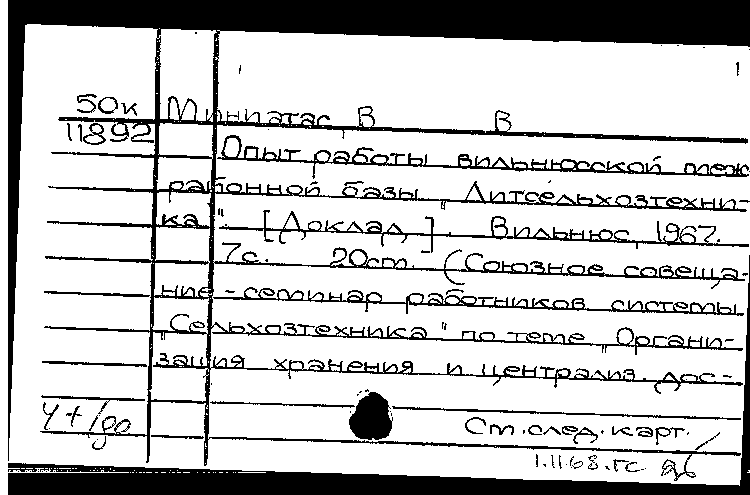 50к Миниатас, В В
11892
Опыт работы вильнюсской меж
районной базы „Литсельхозтехни-
ка". [Доклад]. Вильнюс, 1967.
7с. 20см. (Союзное совеща-
ние-семинар работников системы
„Сельхозтехника" по теме „Органи-
зация хранения и централиз. дос-
Ст. след. карт.
1.II68.гс